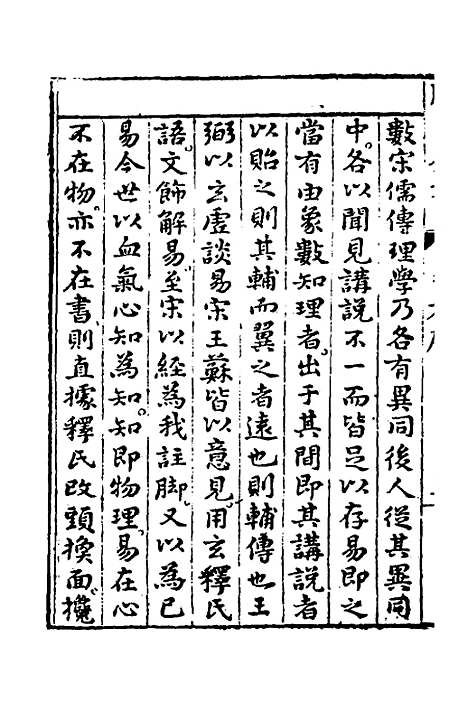 數宋儒傳理學乃各有異同後人從其異同
中各以聞見講說不一而皆足以存易即之
當有由象數知理者出于其間即其講說者
以貽之則其輔而翼之者遠也則輔傳也王
弼以玄虛談易宋王蘇皆以意見用玄釋氏
語文飾解易至宋以經為我註脚又以為已
易今世以血氣心知為知知即物理易在心
不在物亦不在書則直據釋氏改頭換面攙